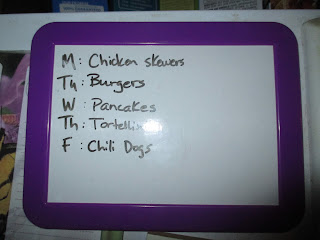 M: Chicken skewers
Tu: Burgers
W: Pancakes
Th: Tortellini
F: Chili Dogs